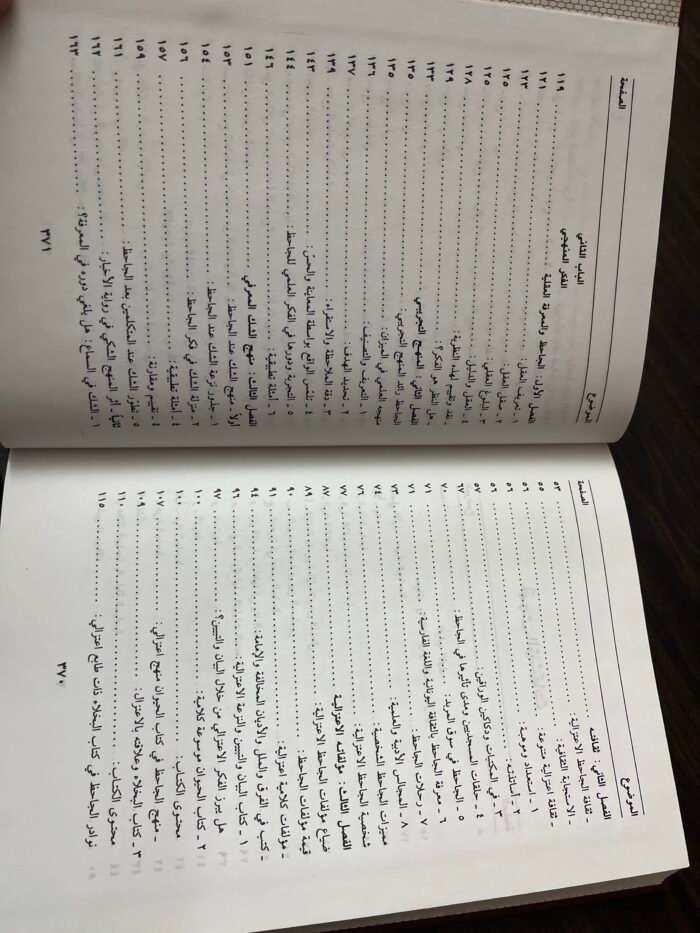 الموضوع الصفحة
الفصل الثاني: ثقافته ٥٣
ـ ثقافة الجاحظ الاعتزالية: ٥٥
ـ الاستجابة الثقافية: ٥٦
ـ ثقافة اعتزالية متنوعة: ٥٦
١ ـ استعداد وموهبة: ٥٦
٢ ـ أساتذته: ٥٦
٣ ـ في المكتبات ودكاكين الوراقين: ٥٧
٤ ـ حلقات المسجديين ومدى تأثيرها في الجاحظ: ٦٧
٥ ـ الجاحظ في سوق المربد: ٧٠
٦ ـ معرفة الجاحظ بالثقافة اليونانية واللغة الفارسية: ٧١
٧ ـ رحلات الجاحظ: ٧١
٨ ـ المجالس الأدبية والعلمية: ٧٣
مميزات الجاحظ الشخصية ٧٤
شخصية الجاحظ الاعتزالية: ٧٦
الفصل الثالث: مؤلفاته الاعتزالية ٧٧
ضياع مؤلفات الجاحظ الاعتزالية: ٨٧
قيمة مؤلفات الجاحظ: ٨٩
ـ مؤلفات كلامية اعتزالية: ٩٠
ـ كتب في الفرق والملل والأديان المخالفة والإمامة: ٩١
١ ـ كتاب البيان والتبيين والنزعة الاعتزالية: ٩٤
هل يبرز الفكر الاعتزالي من خلال البيان والتبيين؟: ٩٦
٢ ـ كتاب الحيوان موسوعة كلامية: ٩٧
محتوى الكتاب: ١٠٠
ـ منهج الجاحظ في كتاب الحيوان منهج اعتزالي: ١٠٠
٣ ـ كتاب البخلاء وعلاقته بالاعتزال: ١٠٧
محتوى الكتاب: ١٠٩
نوادر الجاحظ في كتاب البخلاء ذات طابع اعتزالي: ١١٠
١١٥
٣٧٠
الموضوع الصفحة
الباب الثاني
الفكر المنهجي
١١٩
الفصل الأول: الجاحظ والمعرفة العقلية ١٢١
١ ـ تعريف العقل: ١٢٣
٢ ـ صقل العقل: ١٢٥
٣ ـ البلوغ العقلي: ١٢٥
٤ ـ العقل والدليل: ١٢٨
ـ نقد وتقييم لهذه النظرية: ١٢٩
ـ هل النظر هو الفكر؟: ١٣٣
الفصل الثاني: المنهج التجريبي ١٣٥
الجاحظ رائد المنهج التجريبي: ١٣٥
منهجه العلمي في الميزان: ١٣٦
١ ـ التعريف والتصنيف: ١٣٧
٢ ـ تحديد الهدف:
٣ ـ دقة الملاحظة والاستقراء: ١٣٩
٤ ـ تلمّس الواقع بواسطة المعاينة والحس: ١٤٣
٥ ـ التجربة ودورها في الفكر العلمي للجاحظ: ١٤٤
٦ ـ أمثلة تطبيقية: ١٤٦
الفصل الثالث: منهج الشك المعرفي ١٥١
أولاً ـ منهج الشك عند الجاحظ: ١٥٣
١ ـ جذور نزعة الشك عند الجاحظ: ١٥٤
٢ ـ منزلة الشك في فكر الجاحظ: ١٥٦
٤ ـ أمثلة تطبيقية: ١٥٧
٤ ـ تقييم ومقارنة: ١٥٩
٥ ـ تطور الشك عند المتكلمين بعد الجاحظ: ١٦١
ثانياً ـ أثر المنهج الشكي في رواية الأخبار: ١٦٢
١ ـ الشك في السماع: هل يلغي دوره في المعرفة؟: ١٦٣
٣٧١